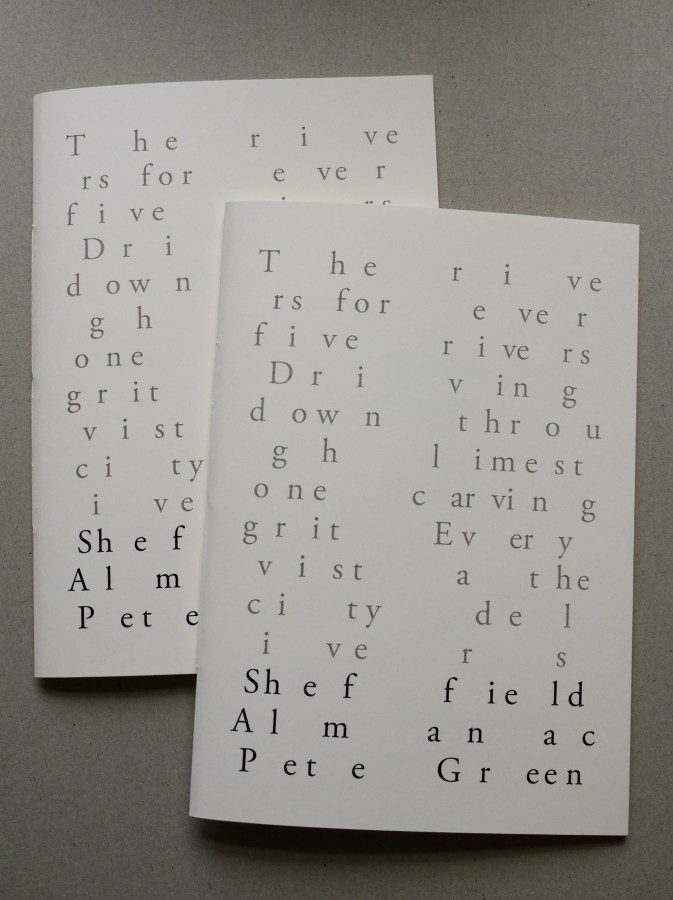 T h e r i v e
rs for e ve r
f i ve
D r i
d ow n
g h
o n e
g r it
v i st
c i ty
i v e
Sh e f
A l m
P et e
T h e r i ve
rs for e ve r
f i v e r i ve rs
D r i v in g
d ow n th r o u
g h l imest
o n e c ar vi n g
g r it Ev er y
v i st a t he
c i ty d e l
i v e r s
Sh e f f ie ld
A l m a n a c
P et e G r een